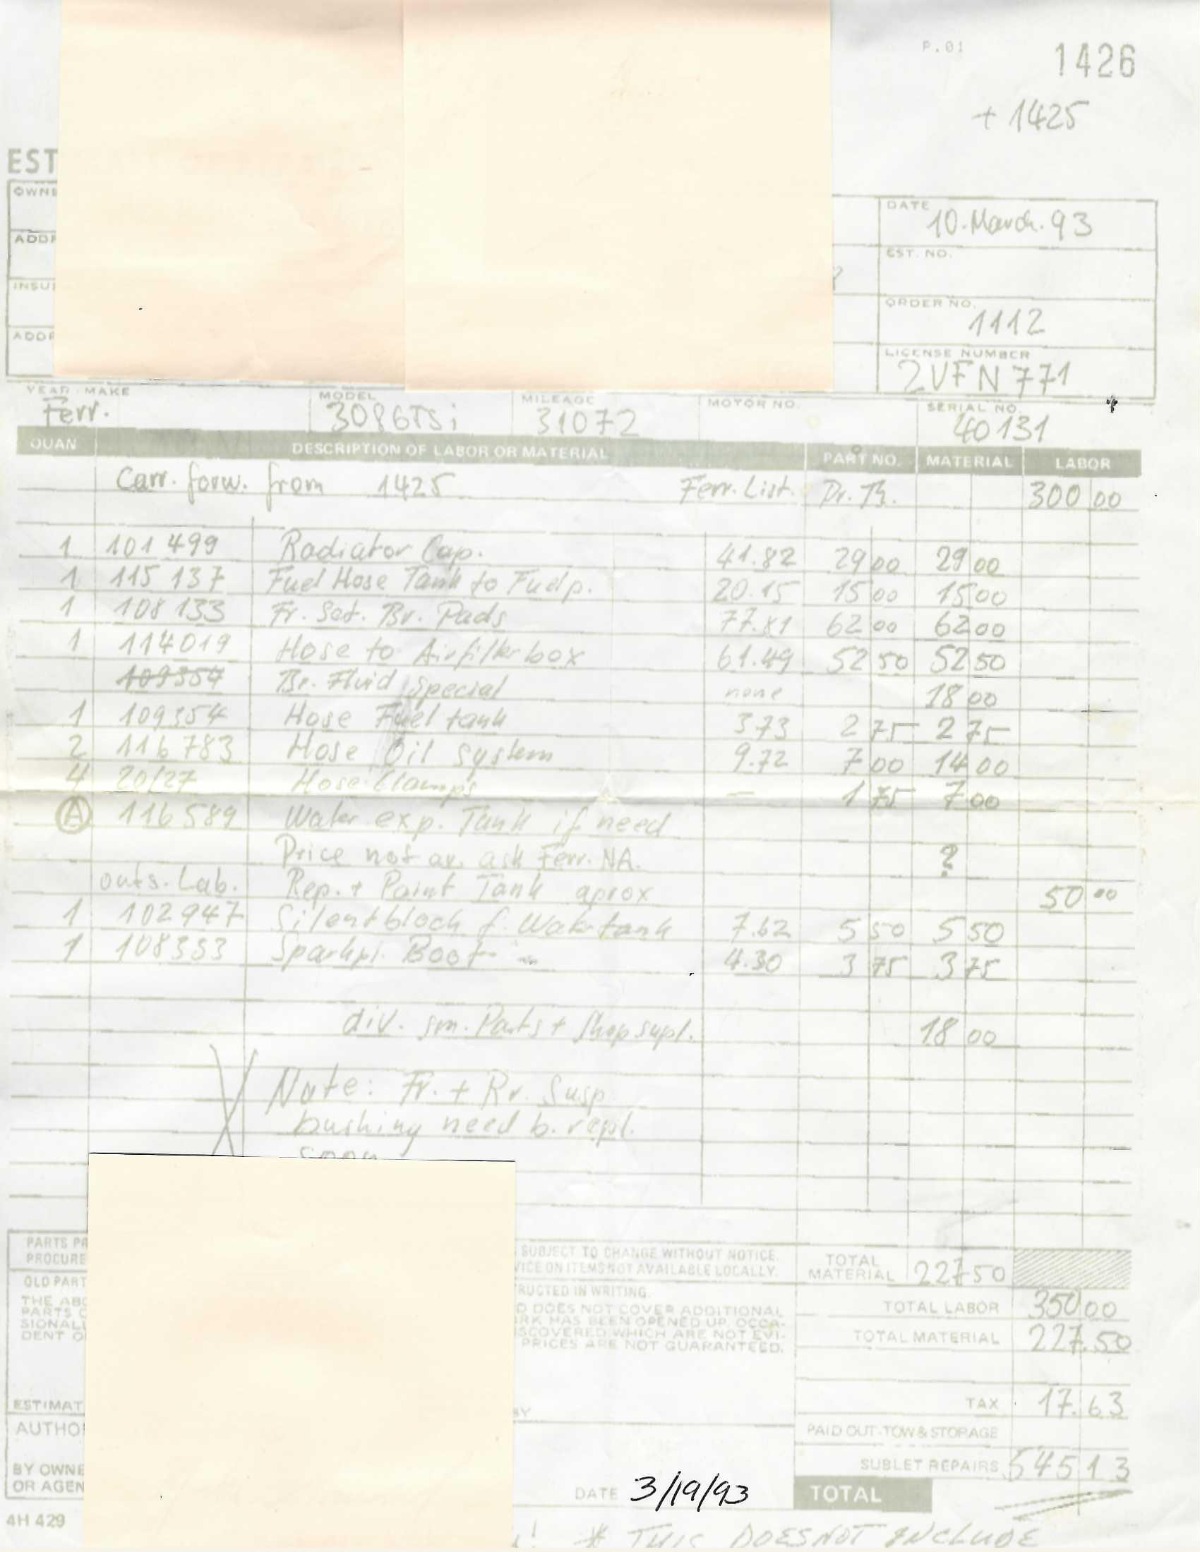 P.01
1426
+ 1425
EST
OWNE
DATE 10.March.93
ADDR
EST. NO.
INSU
ORDER NO. 1112
ADDR
LICENSE NUMBER 2VFN771
YEAR - MAKE Ferr. MODEL 308GTSi MILEAGE 31072 MOTOR NO. SERIAL NO. 40131
QUAN DESCRIPTION OF LABOR OR MATERIAL PART NO. MATERIAL LABOR
Carr. forw. from 1425 Ferr. List. Pr. 300 00
1 101 499 Radiator Cap. 41.82 29 00 29 00
1 115 137 Fuel Hose Tank to Fuelp. 20.15 15 00 15 00
1 108 133 Fr. Set. Br. Pads 77.81 62 00 62 00
1 114019 Hose to Airfilterbox 61.49 52 50 52 50
109354 Br. Fluid special none 18 00
1 109354 Hose Fuel tank 3.73 2 75 2 75
2 116 783 Hose Oil System 9.72 7 00 14 00
4 20/27 Hose Clamps — 1 75 7 00
A 116 589 Water exp. Tank if need
Price not av. ask Ferr. NA. ?
outs. Lab. Rep. + Paint Tank aprox 50 00
1 102947 Silentblock f. Watertank 7.62 5 50 5 50
1 108333 Sparkpl. Boot 4.30 3 75 3 75
div. sm. Parts + Shop supl. 18 00
Note: Fr. + Rr. Susp
bushing need b. repl.
soon
PARTS PR
PROCURE
SUBJECT TO CHANGE WITHOUT NOTICE.
VICE ON ITEMS NOT AVAILABLE LOCALLY.
TOTAL MATERIAL 227 50
OLD PART
RUCTED IN WRITING.
THE ABO
D DOES NOT COVER ADDITIONAL
TOTAL LABOR 350 00
PARTS O
RK HAS BEEN OPENED UP. OCCA-
SIONALL
SCOVERED WHICH ARE NOT EVI-
DENT O
PRICES ARE NOT GUARANTEED.
TOTAL MATERIAL 227.50
ESTIMAT
BY
TAX 17.63
AUTHO
PAID OUT-TOW & STORAGE
BY OWNE
OR AGEN
SUBLET REPAIRS
DATE 3/19/93
TOTAL 545 13
4H 429
! * THIS DOES NOT INCLUDE